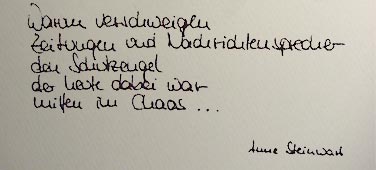 Warum verschweigen
Zeitungen und Nachrichtensprecher
den Schutzengel
der heute dabei war
mitten im Chaos ...
Anne Steinwart